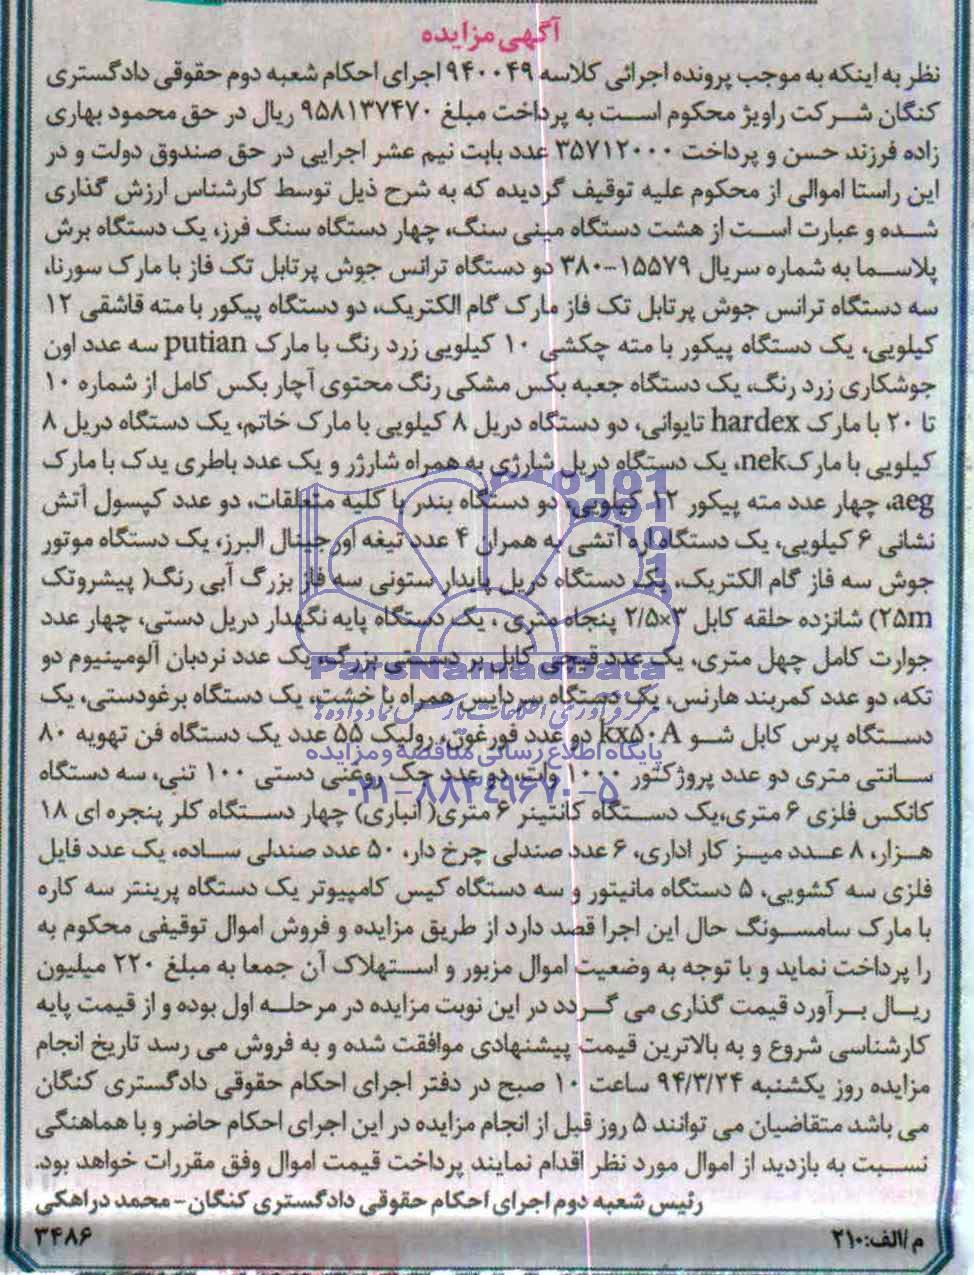 آگهی مزایده
نظر به اینکه به موجب پرونده اجرائی کلاسه ۹۴۰۰۴۹ اجرای احکام شعبه دوم حقوقی دادگستری
کنگان شرکت راویژ محکوم است به پرداخت مبلغ ۹۵۸۱۳۷۴۷۰ ریال در حق محمود بهاری
زاده فرزند حسن و پرداخت ۳۵۷۱۲۰۰۰ عدد بابت نیم عشر اجرایی در حق صندوق دولت و در
این راستا اموالی از محکوم علیه توقیف گردیده که به شرح ذیل توسط کارشناس ارزش گذاری
شده و عبارت است از هشت دستگاه مینی سنگ، چهار دستگاه سنگ فرز، یک دستگاه برش
پلاسما به شماره سریال ۱۵۵۷۹-۳۸۰ دو دستگاه ترانس جوش پرتابل تک فاز با مارک سورنا،
سه دستگاه ترانس جوش پرتابل تک فاز مارک گام الکتریک، دو دستگاه پیکور با مته قاشقی ۱۲
کیلویی، یک دستگاه پیکور با مته چکشی ۱۰ کیلویی زرد رنگ با مارک putian سه عدد اون
جوشکاری زرد رنگ، یک دستگاه جعبه بکس مشکی رنگ محتوی آچار بکس کامل از شماره ۱۰
تا ۲۰ با مارک hardex تایوانی، دو دستگاه دریل ۸ کیلویی با مارک خاتم، یک دستگاه دریل ۸
کیلویی با مارک nek، یک دستگاه دریل شارژی به همراه شارژر و یک عدد باطری یدک با مارک
aeg، چهار عدد مته پیکور ۱۲ کیلویی، دو دستگاه بندر با کلیه متعلقات، دو عدد کپسول آتش
نشانی ۶ کیلویی، یک دستگاه اره آتشی به همران ۴ عدد تیغه اورجینال البرز، یک دستگاه موتور
جوش سه فاز گام الکتریک، یک دستگاه دریل پایدار ستونی سه فاز بزرگ آبی رنگ( پیشروتک
۲۵m) شانزده حلقه کابل ۳×۲/۵ پنجاه متری ، یک دستگاه پایه نگهدار دریل دستی، چهار عدد
جوارت کامل چهل متری، یک عدد قیچی کابل بر دستی بزرگ، یک عدد نردبان آلومینیوم دو
تکه، دو عدد کمربند هارنس، یک دستگاه سردابس همراه با خشت، یک دستگاه برغودستی، یک
دستگاه پرس کابل شو kx۵۰A دو عدد فورغون، رولیک ۵۵ عدد یک دستگاه فن تهویه ۸۰
سانتی متری دو عدد پروژکتور ۱۰۰۰ وات، دو عدد جک روغنی دستی ۱۰۰ تنی، سه دستگاه
کانکس فلزی ۶ متری،یک دستگاه کانتینر ۶ متری( انباری) چهار دستگاه کلر پنجره ای ۱۸
هزار، ۸ عدد میز کار اداری، ۶ عدد صندلی چرخ دار، ۵۰ عدد صندلی ساده، یک عدد فایل
فلزی سه کشویی، ۵ دستگاه مانیتور و سه دستگاه کیس کامپیوتر یک دستگاه پرینتر سه کاره
با مارک سامسونگ حال این اجرا قصد دارد از طریق مزایده و فروش اموال توقیفی محکوم به
را پرداخت نماید و با توجه به وضعیت اموال مزبور و استهلاک آن جمعا به مبلغ ۲۲۰ میلیون
ریال برآورد قیمت گذاری می گردد در این نوبت مزایده در مرحله اول بوده و از قیمت پایه
کارشناسی شروع و به بالاترین قیمت پیشنهادی موافقت شده و به فروش می رسد تاریخ انجام
مزایده روز یکشنبه ۹۴/۳/۲۴ ساعت ۱۰ صبح در دفتر اجرای احکام حقوقی دادگستری کنگان
می باشد متقاضیان می توانند ۵ روز قبل از انجام مزایده در این اجرای احکام حاضر و با هماهنگی
نسبت به بازدید از اموال مورد نظر اقدام نمایند پرداخت قیمت اموال وفق مقررات خواهد بود.
رئیس شعبه دوم اجرای احکام حقوقی دادگستری کنگان - محمد دراهکی
م/الف: ۲۱۰
۳۴۸۶
ParsNamadData
مرکز فرآوری اطلاعات پارس نماد داده ها
پایگاه اطلاع رسانی مناقصه و مزایده
۰۲۱-۸۸۳۴۹۶۷۰-۵